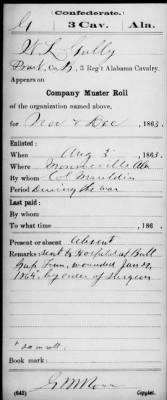 (Confederate.)
G 3 Cav. Ala.
W. L. Gully
Co. B, 3 Reg't Alabama Cavalry.
Appears on
Company Muster Roll
of the organization named above,
for Nov & Dec, 1863.
Enlisted:
When Aug 3, 1863.
Where Ala
By whom Col Mauldin
Period During the war
Last paid:
By whom
To what time , 186 .
Present or absent Absent
Remarks: sent to Hospital at Bull
Gap Tenn, wounded Jan
1864 by order of Surgeon
* so on roll.
Book mark:
(642) Copyist.